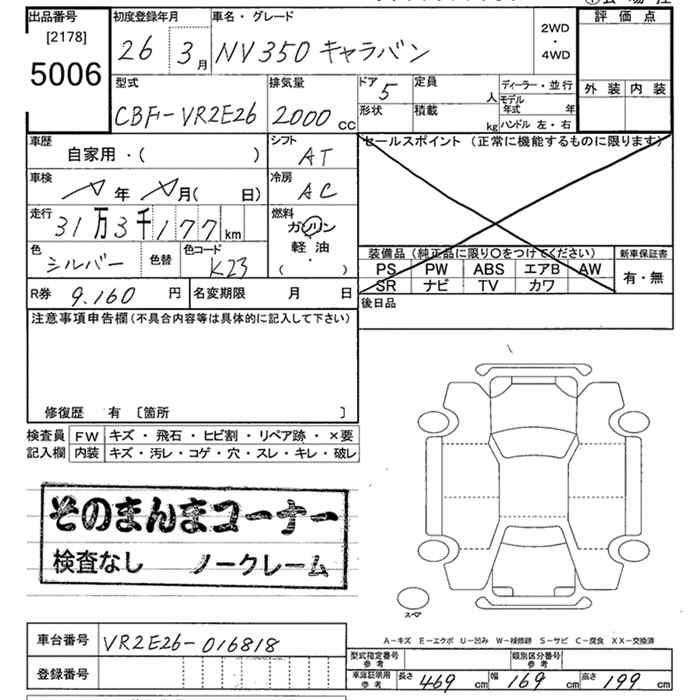 出品番号
[2178]
5006
初度登録年月
26 3月
車名・グレード
NV350 キャラバン
2WD
・
4WD
評価点
外装 内装
型式
CBF-VR2E26
排気量
2000 CC
ドア
5
形状
定員
人
積載
kg
ディーラー・並行
モデル年式 年
ハンドル 左・右
車歴
自家用・( )
シフト
AT
車検
年 月( 日)
冷房
AC
走行
31万3千177km
燃料
ガソリン
軽油
( ・ )
色
シルバー
色替
色コード
K23
R券 9.160 円
名変期限 月 日
セールスポイント (正常に機能するものに限ります)
装備品(純正品に限り○をつけてください)
PS PW ABS エアB AW
SR ナビ TV カワ
新車保証書
有・無
後日品
注意事項申告欄(不具合内容等は具体的に記入して下さい)
修復歴 有 〔箇所 〕
検査員記入欄
FW キズ・飛石・ヒビ割・リペア跡・×要
内装 キズ・汚レ・コゲ・穴・スレ・キレ・破レ
そのまんまコーナー
検査なし ノークレーム
スペア
車台番号 VR2E26-016818
登録番号
A-キズ E-エクボ U-凹み W-補修跡 S-サビ C-腐食 XX-交換済
型式指定番号
参考
類別区分番号
参考
車庫証明用
参考
長さ 469cm 幅 169cm 高さ 199cm